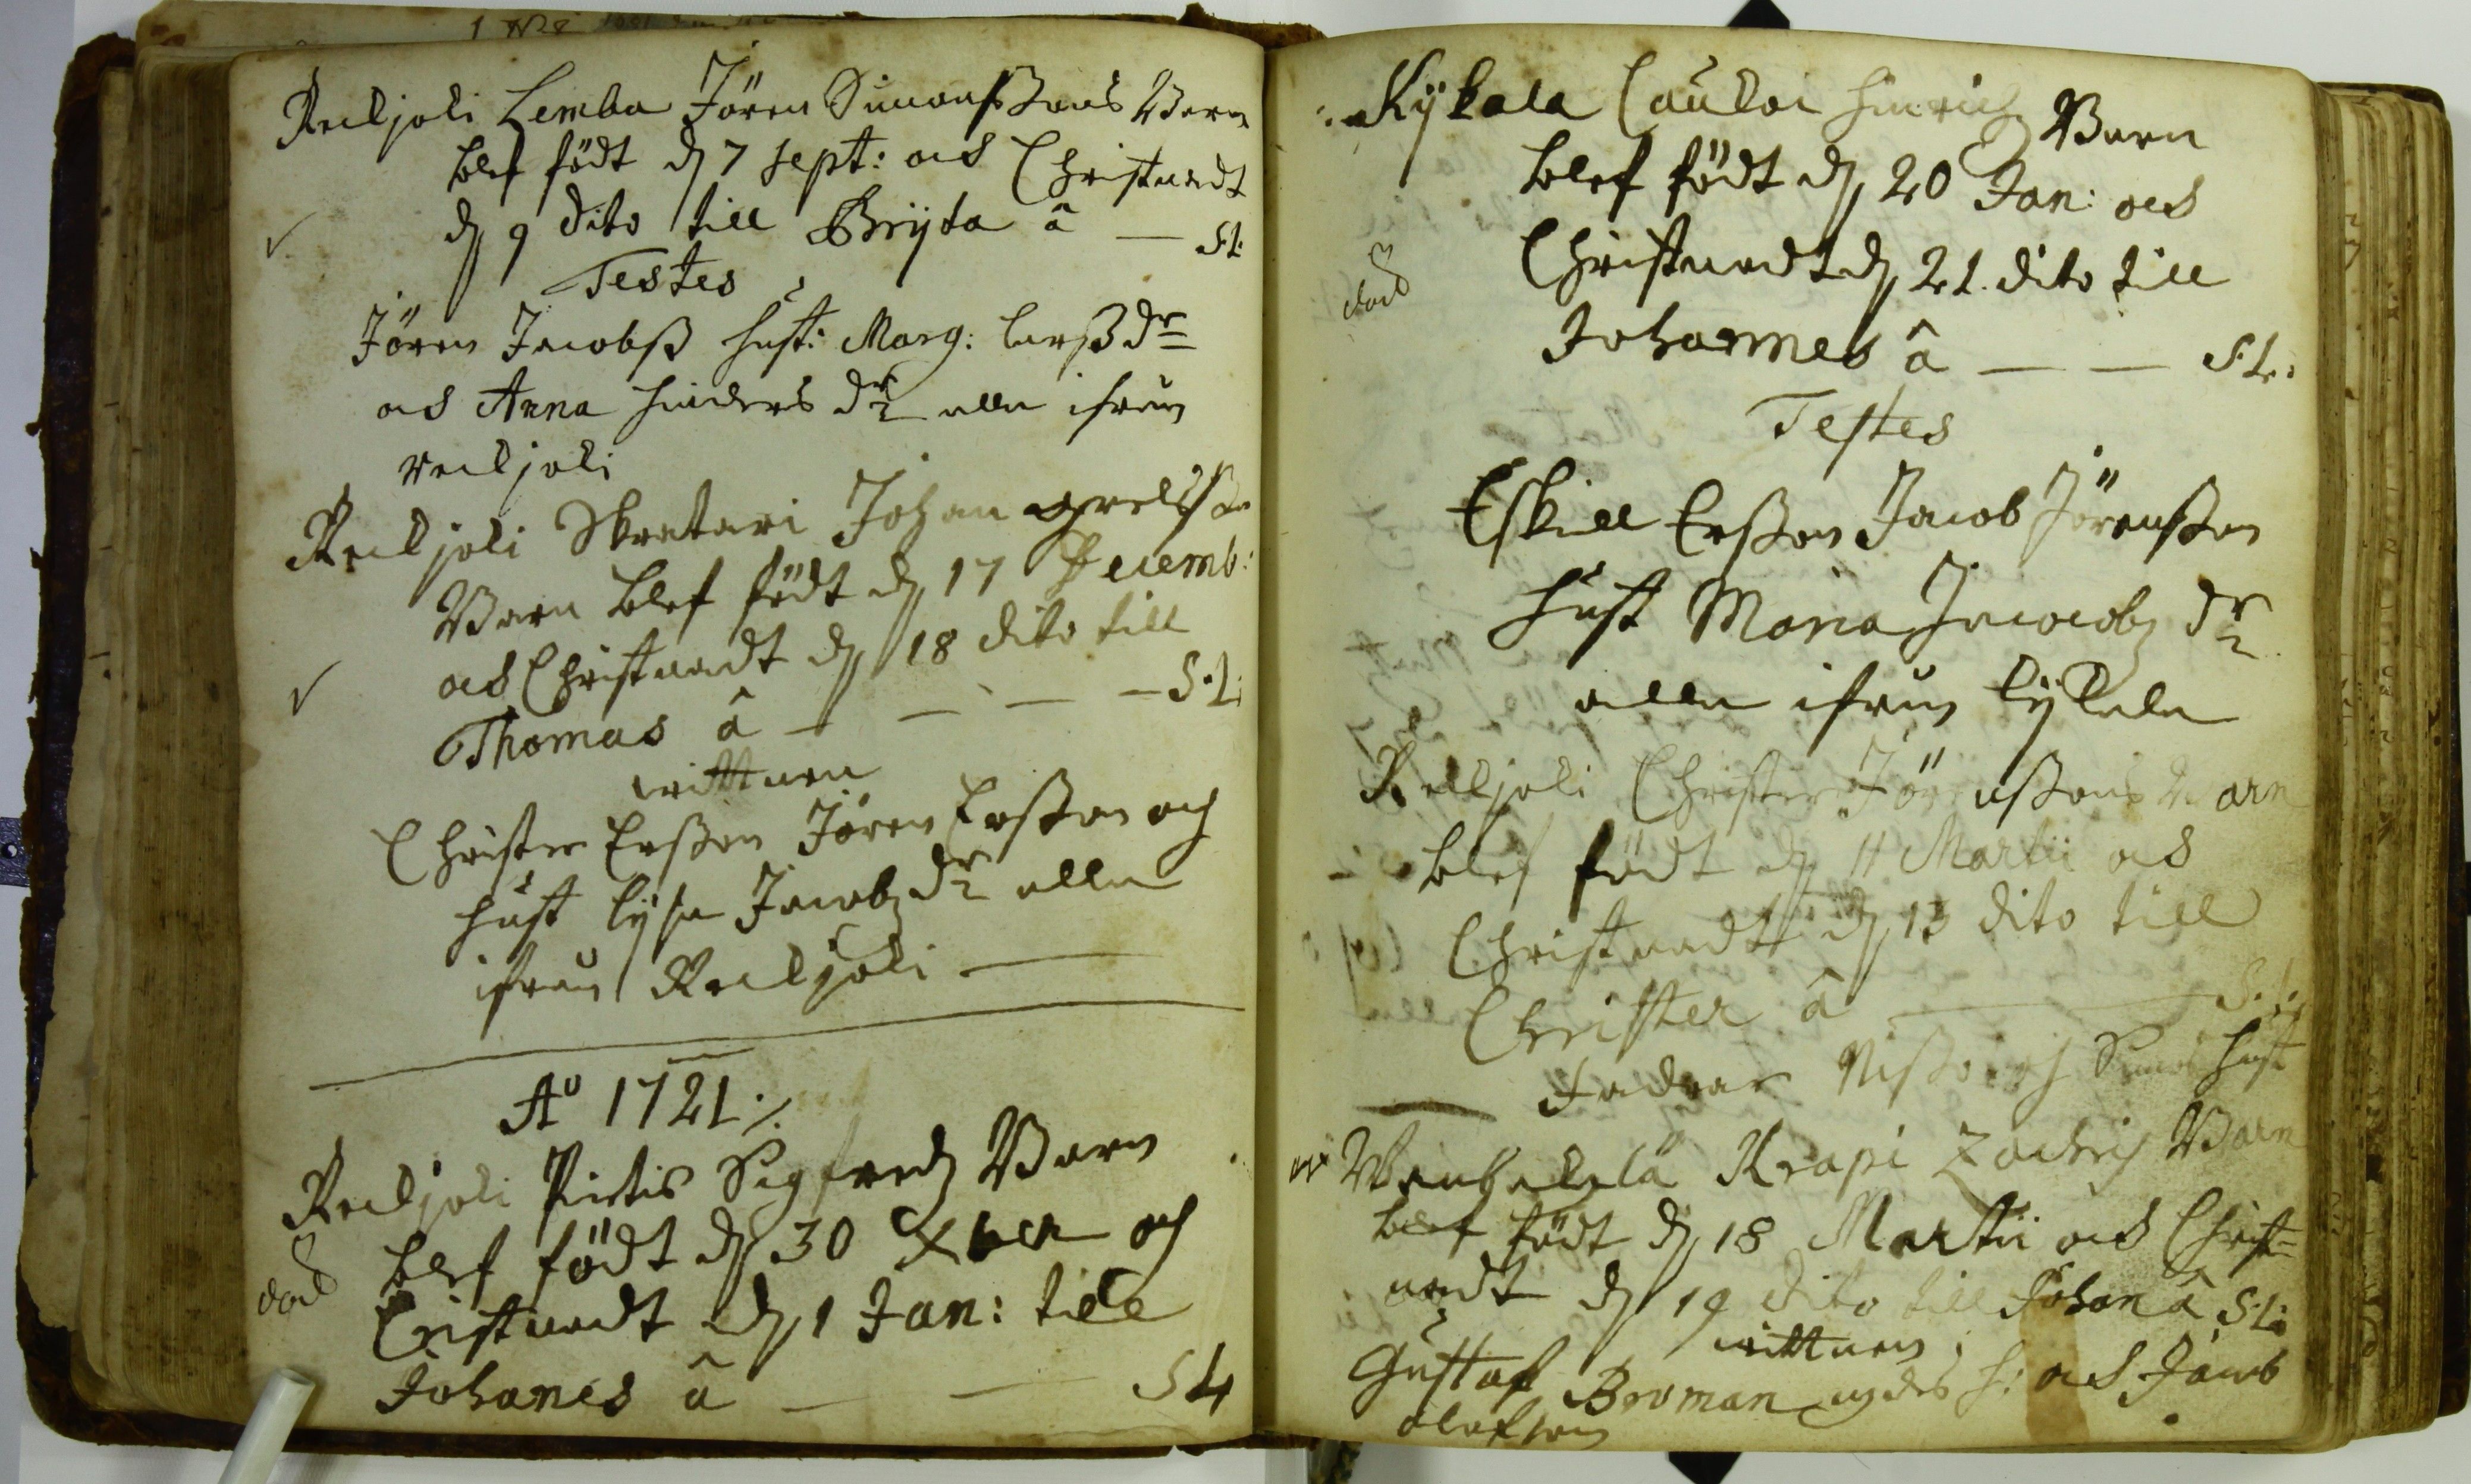 Reckjoki Lemba Jören Simonßons Barn
blef födt d. 7 Sept: och Christnadt
d. 9 dito till Brijta â — S:L:
Testes
Jören Jacobß Hust: Marg: Larßdr
och Anna Hindersdr alla ifrån
reckjoki
Reckjoki Skratari Johan Grelsßo
Barn blef födt d. 17 Decemb:
och Christnadt d. 18 dito till
Thomas â — — — — S:L:
wittnen
Christer Erßon Jören Erßon och
Hust Lijsa Jacobzdr alla
ifrån Reckjoki —
A° 1721 ./.
Reckjoki Pirtis Sigfredz Barn
död
blef födt d. 30 Xber och
Cristnadt d. 1 Jan: till
Johanes â — — S L
Kijkala Caukoi Hinrich Barn
blef födt d. 20 Jan: och
Christnadt d. 21. dito till
död
Johannes â — — S:L:
Testes
Eskill Erßon Jacob Jörenßon
Hust Maria Jacobz dr
alla ifrån Kijkala
Reckjoki Christer Jörenßons Barn
blef födt d. 11 Martii och
Christnadt d. 13 dito till
Christer â — S:L:
Faddrar Hust
Krapi Zachris Barn
blef födt d. 18 Martii och Christ=
nadt d. 19 dito till Johan â S:L:
wittnen
Gustaf Broman och Jacob
olofson